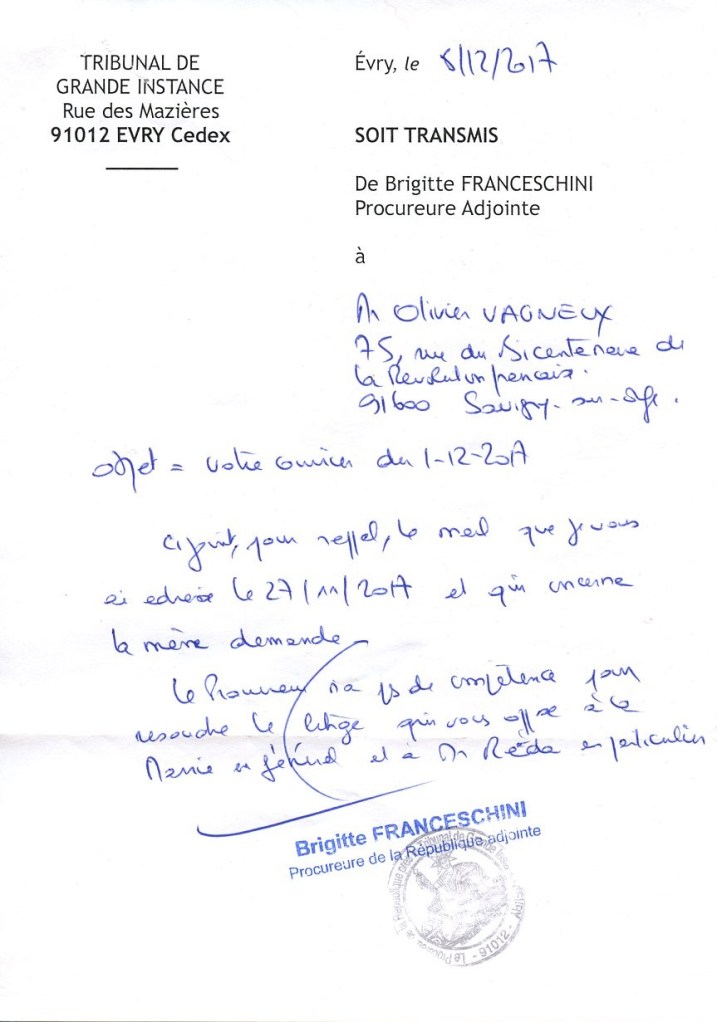 TRIBUNAL DE
GRANDE INSTANCE
Rue des Mazières
91012 EVRY Cedex
Évry, le 8/12/2017
SOIT TRANSMIS
De Brigitte FRANCESCHINI
Procureure Adjointe
à
Mr Olivier VAGNEUX
75, rue du Bicentenaire de
la Révolution française.
91600 Savigny-sur-Orge.
objet = votre courrier du 1-12-2017
Ci joint, pour rappel, le mail que je vous
ai adressé le 27/11/2017 et qui concerne
la même demande
Le Procureur n'a pas de compétence pour
resoudre le litige qui vous oppose à la
Mairie en général et à Mr Réda en particulier
Brigitte FRANCESCHINI
Procureure de la République adjointe
91012